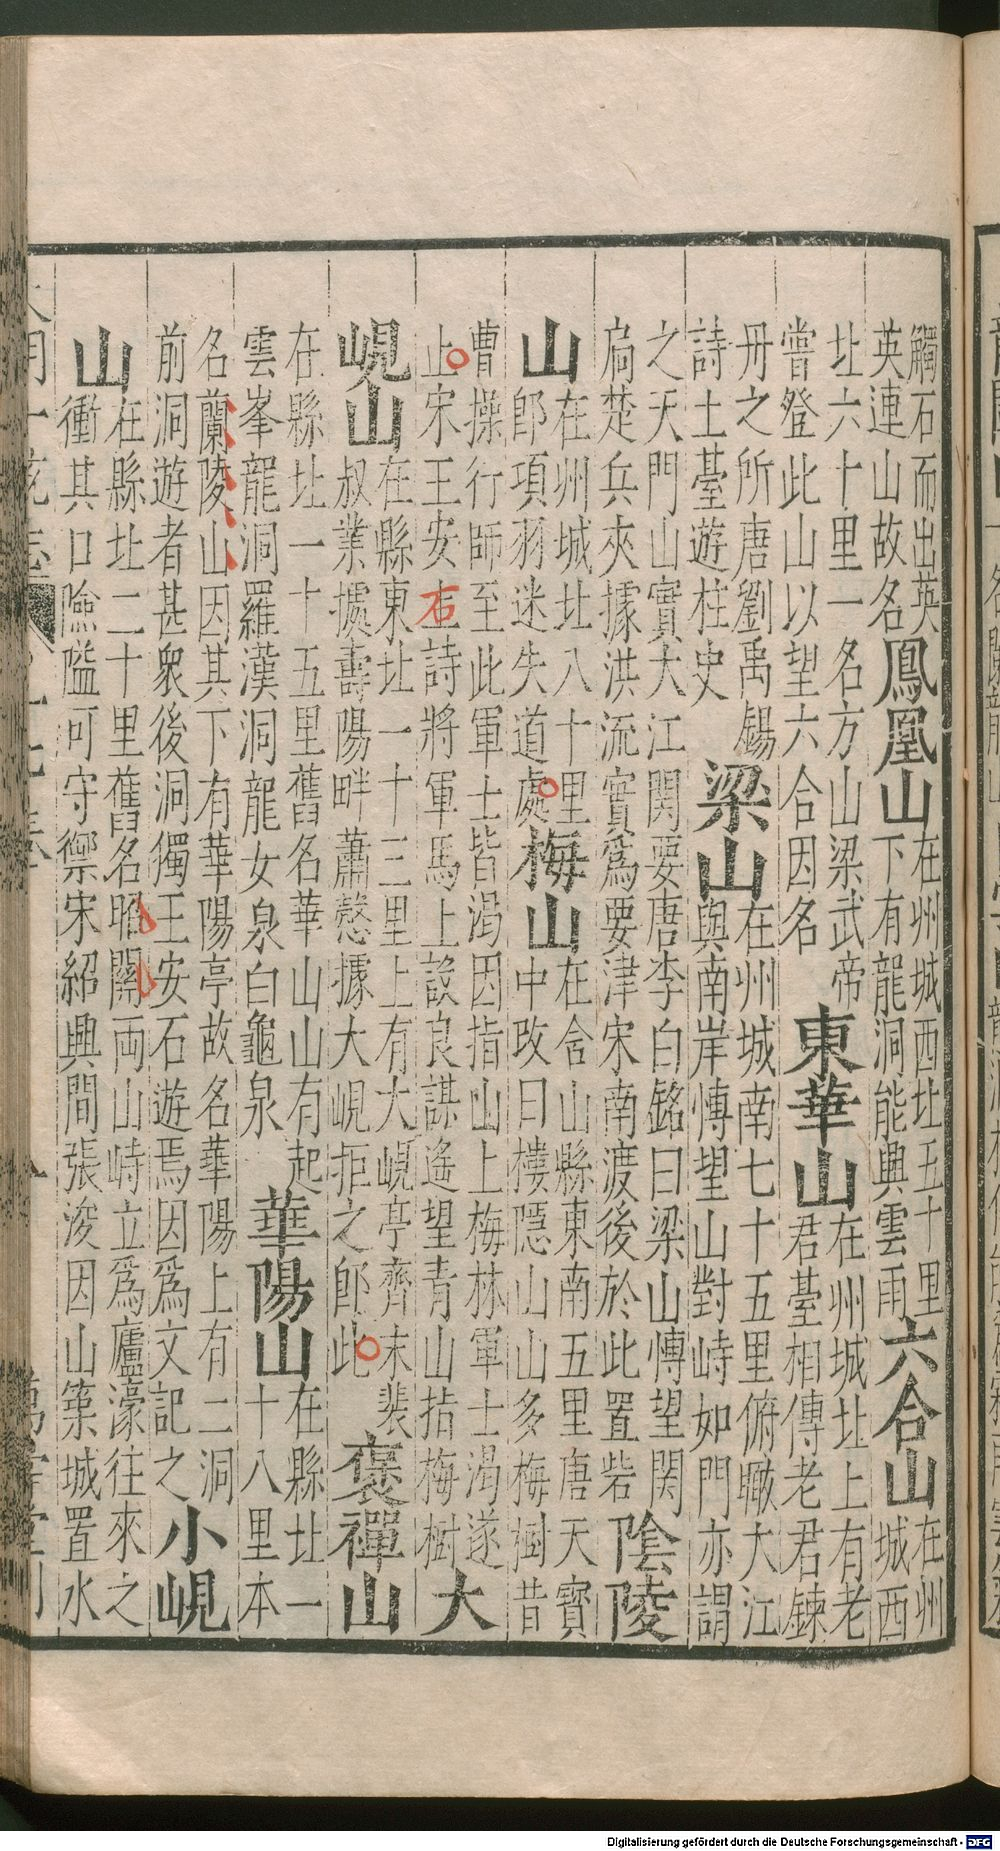 觸石而出英英連山故名鳳凰山在州城西北五十里下有龍洞能興雲雨六合山在州城西
北六十里一名方山梁武帝嘗登此山以望六合因名東華山在州城北上有老君臺相傳老君鍊
丹之所唐劉禹錫詩土臺遊柱史梁山在州城南七十五里俯瞰大江與南岸愽望山對峙如門亦謂
之天門山實大江関要唐李白銘曰梁山愽望関扃楚兵夾據洪流實爲要津宋南渡後於此置砦陰陵
山在州城北八十里即項羽迷失道處梅山在含山縣東南五里唐天寶中攺曰樓隱山山多梅樹昔
曹操行師至此軍士皆渴因指山上梅林軍士渴遂止宋王安石詩將軍馬上談良謀遙望青山指梅樹大
峴山在縣東北一十三里上有大峴亭齊末裴叔業據壽陽畔蕭慤據大峴拒之即此褒禪山
在縣北一十五里舊名華山山有起雲峯龍洞羅漢洞龍女泉白龜泉華陽山在縣北一十八里本
名蘭陵山因其下有華陽亭故名華陽上有二洞前洞遊者甚衆後洞獨王安石遊焉因爲文記之小峴
山在縣北二十里舊名昭關両山峙立爲廬濠往來之衝其口險隘可守禦宋紹興間張浚因山築城置水
大明一統志 萬壽堂刊
Digitalisierung gefördert durch die Deutsche Forschungsgemeinschaft - DFG